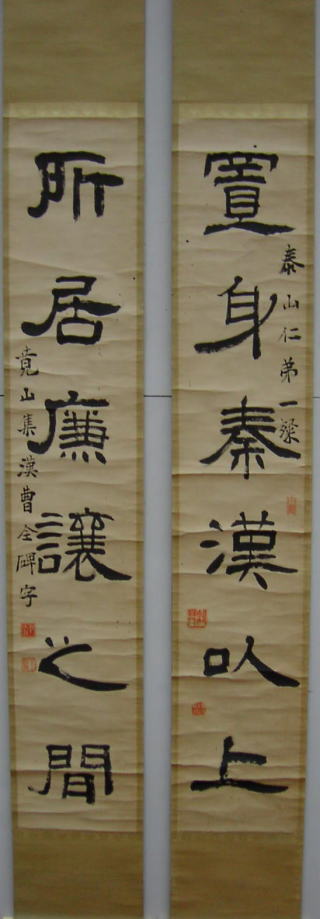 置身秦漢以上
泰山仁弟一粲
所居廉讓之間
竟山集漢曹全碑字